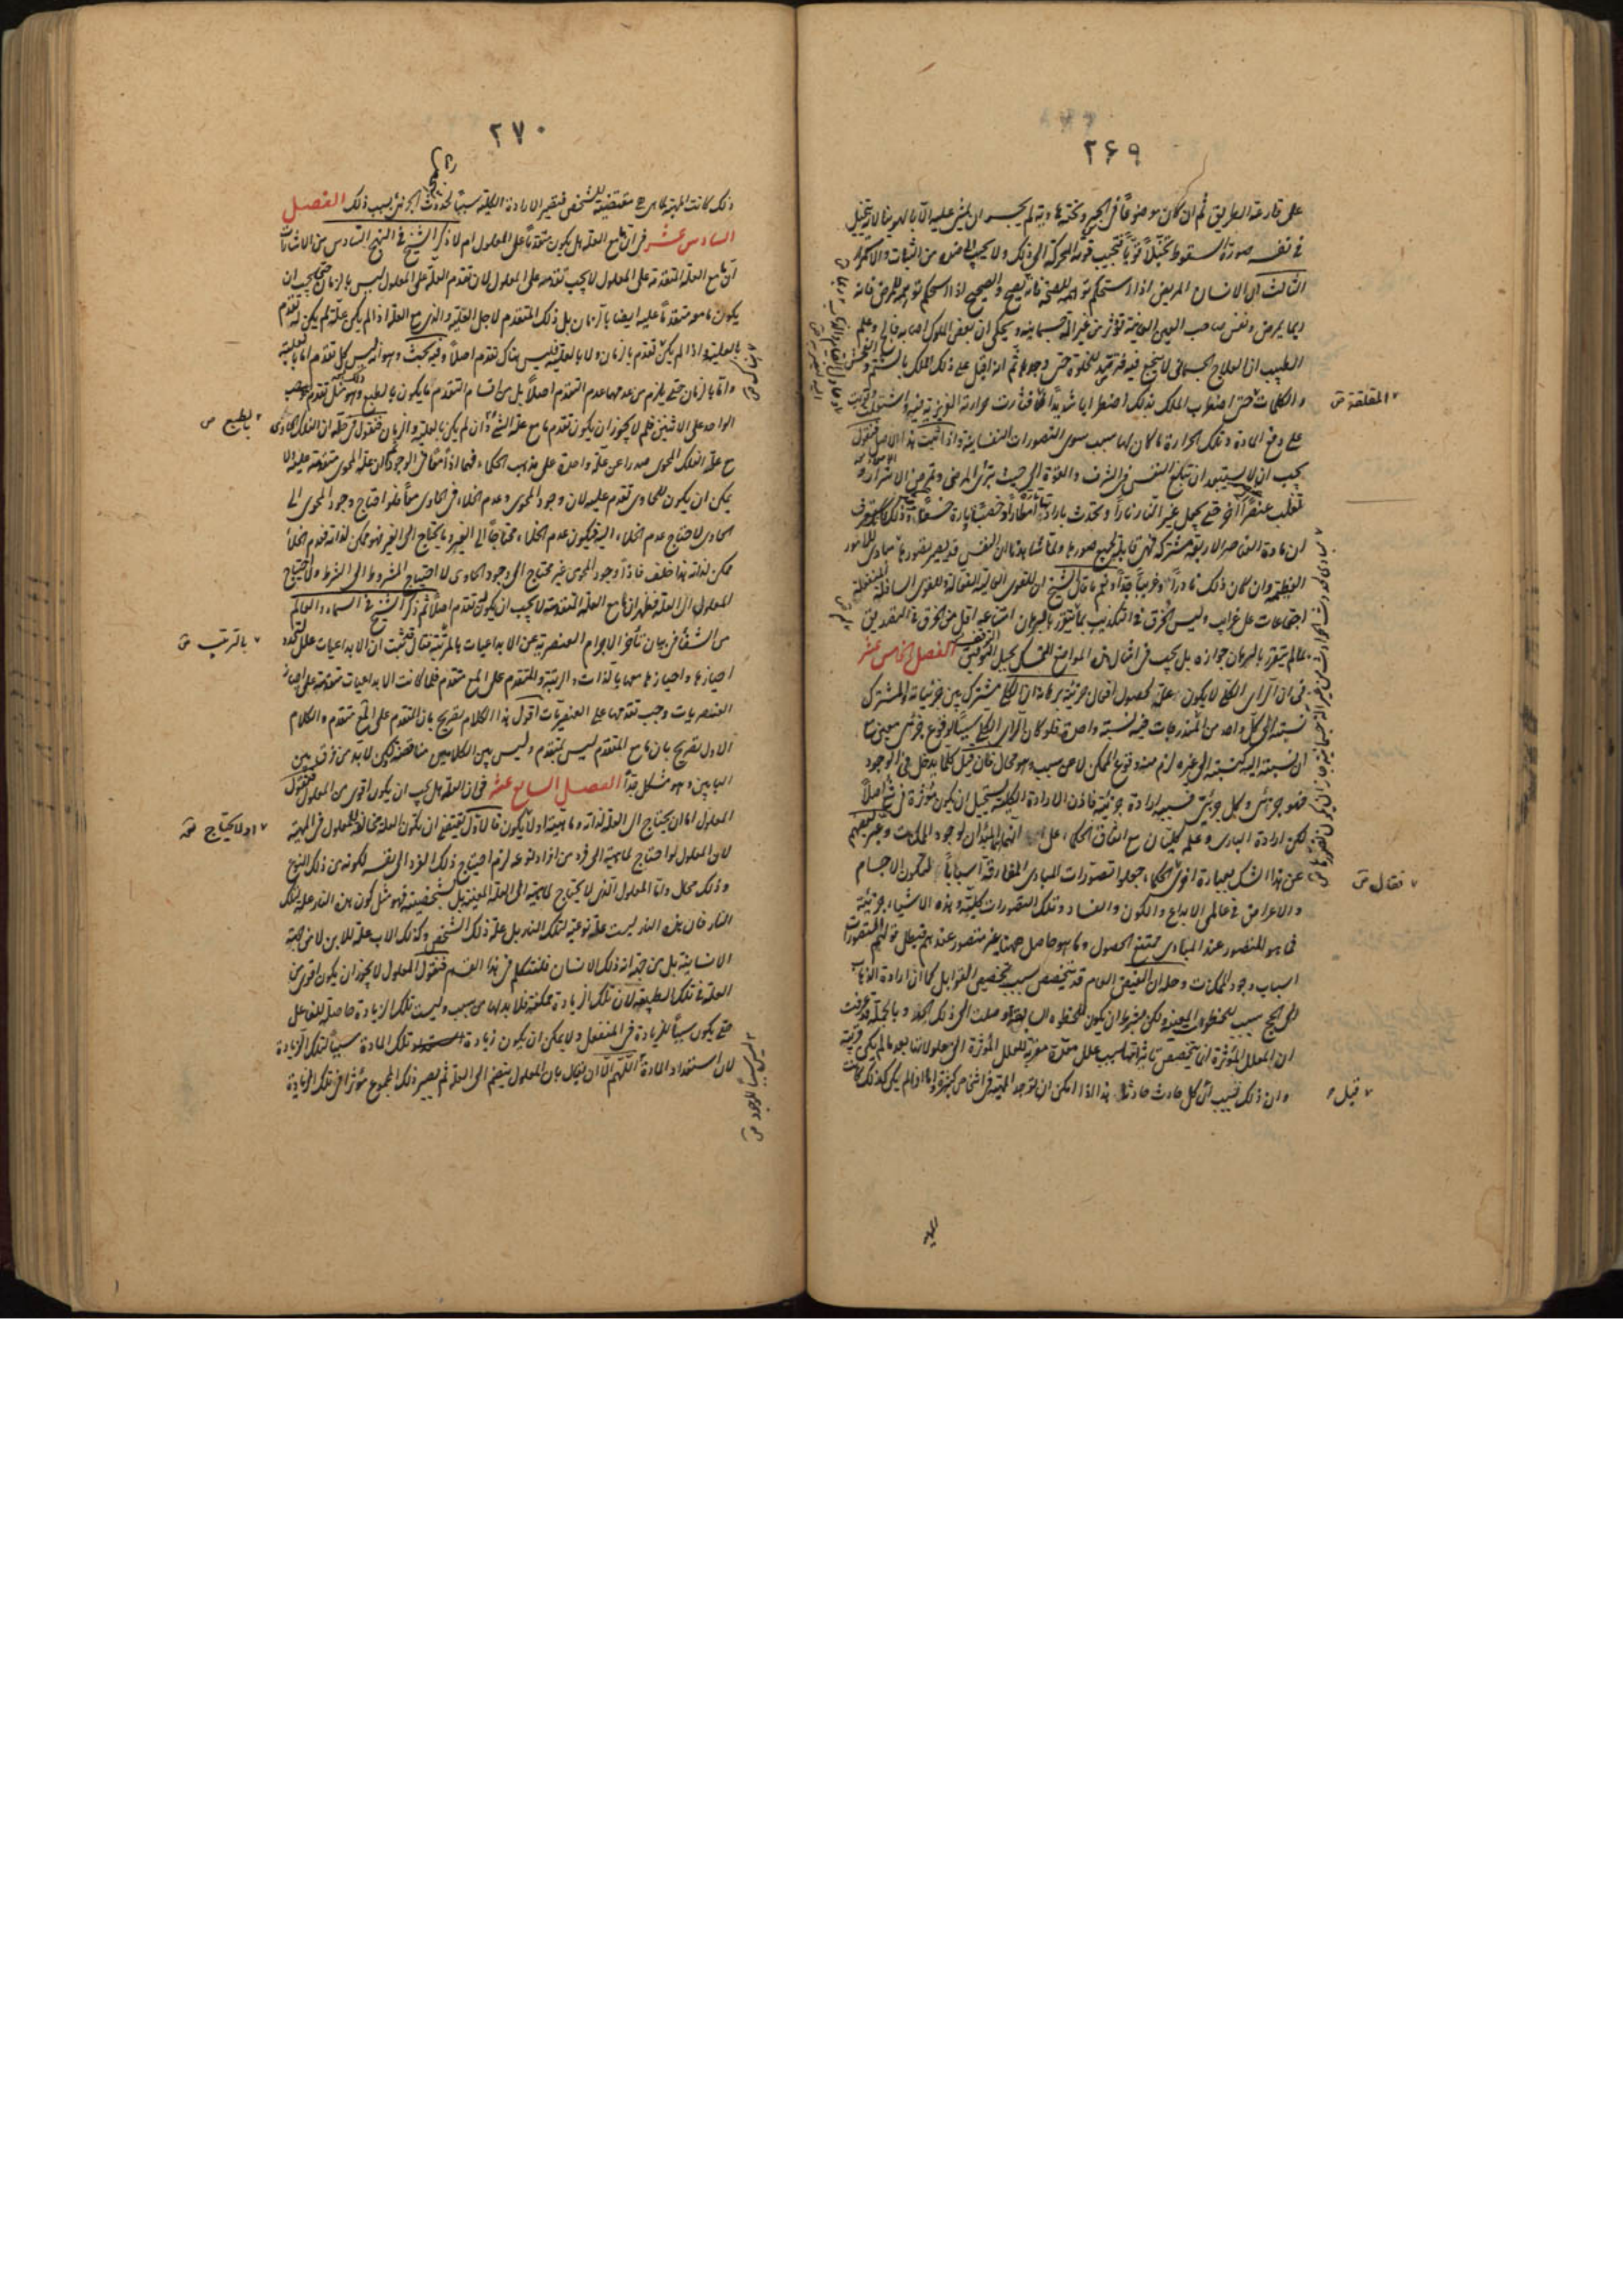 ٢۶٩
على قارعة الطريق ثم ان كان موضوعًا فى الجسر وتحته هاوية لم يجسر ان يمشى عليه الا بالهوينا لانه يتخيل
فى نفسه صورة السقوط تخيلًا قويًا فتجيب قوته المحركة الى ذلك ولا يجيب الى ضده من الثبات والاستمرار
الثالث ان الانسان المريض اذا استحكم توهمه للصحة فانه يصح والصحيح اذا استحكم توهمه للمرض فانه
ربما يمرض ونفس صاحب العين العاينة تؤثر من غير آلة جسمانية ويحكى ان بعض الملوك اصابه فالج وعلم
الطبيب ان العلاج الجسمانى لا ينجع فيه فترقب للخلوة حتى وجدها ثم انه اقبل على ذلك الملك بالشتم والفحش
والكلمات حتى اضطرب الملك بذلك اضطرابا شديدًا فثارت حرارته الغريزية فيه واشتعلت وقويت
على دفع المادة وتلك الحرارة ما كان لها سبب سوى التصورات النفسانية واذا ثبت هذا الاصل فنقول
يجب ان لا يستبعد ان تبلغ النفس فى الشرف والقوة الى حيث تبرئ المرضى وتمرض الاشرار و
تقلب عنصرًا آخر حتى يجعل غير النار نارًا وتحدث بارادته امطار او خصب تارة خسف وذلك لما ستعرف
ان مادة العناصر الاربعة مشتركة فهى قابلة لجميع صورها ولما شاهدنا ان النفس قد يصير تصورها مبادى للامور
العظيمة وان كان ذلك نادرًا وغريبًا جدًا ونعم ما قال الشيخ ان للقوى العالية الفعالة وللقوى السافلة المنفعلة
اجتماعات على غرايب وليس الخرق فى التكذيب بما لم يتقرر بالبرهان امتناعه اقل من الخرق فى التصديق
بما لم يتقرر بالبرهان جوازه بل يجب فى امثال هذه المواضع التمسك بحبل التوقف الفصل الخامس عشر
فى ان الرأى الكلى لا يكون علة لحصول افعال جزئية برهانه ان الكلى مشترك بين جزئياته والمشترك
نسبته الى كل واحد من المندرجات فيه نسبة واحدة فلو كان الرأى الكلى سببًا لوقوع جزئى معين مع
ان نسبته اليه كنسبته الى غيره لزم منه وقوع الممكن لا عن سبب وهو محال فان قيل كلما يدخل فى الوجود
فهو جزئى وكل جزئى فسببه ارادة جزئية فاذن الارادة الكلية يستحيل ان يكون مؤثرة فى شئ اصلًا
لكن ارادة البارى وعلمه كليتان مع اتفاق الحكماء على انهما المبدآن لوجود الممكنات وعبر بعضهم
عن هذا الشك بعبارة اخرى الحكماء جعلوا تصورات المبادى المفارقة اسبابًا لتكون الاجسام
والاعراض فى عالمى الابداع والكون والفساد وتلك التصورات كلية وهذه الاشياء جزئية
فما هو المتصور عند المبادى ممتنع الحصول وما هو حاصل ههنا غير متصور عندهم فيبطل قولهم المتصورات
اسباب وجود الممكنات وحله ان الفيض العام قد يتخصص بسبب تخصيص القوابل كما ان ارادة الذهاب
الى الحج سبب للخطوة المعينة ولكن بشرط ان يكون للخطوة السابقة وصلت الى ذلك الحد وبالجملة قد عرفت
ان العلل المؤثرة انما يتخصص تاثيراتها بسبب علل معدة مقربة للعلل المؤثرة الى معلولاتها بعد ما لم يكن قريبة
وان ذلك بسبب ان كل حادث حادثا هذا اذا امكن ان توجد المهية فى اشخاص كثيرة واما اذا لم يكن كذلك كانت
المقلقة
فقال
قبل
٢٧٠
ذلك كانت المهية لما هى هى مقتضية للشخص فتصير الارادة الكلية سببًا لحدوث الجزئى بسبب ذلك الفصل
السادس عشر فى ان ما مع العلة هل يكون متقدمًا على المعلول ام لا ذكر الشيخ فى النهج السادس من الاشارات
ان ما مع العلة المتقدمة على المعلول لا يجب تقدمه على المعلول لان تقدم العلة على المعلول ليس بالزمان حتى يجب ان
يكون ما معه متقدمًا عليه ايضا بالزمان بل ذلك المتقدم لاجل العلية والذى مع العلة اذا لم يكن علة لم يكن له تقدم
بالعلية واذا لم يكن تقدم بالزمان ولا بالعلية فليس هناك تقدم اصلًا وفيه بحث وهو انه ليس كل تقدم اما بالعلية
واما بالزمان حتى يلزم من عدمهما عدم التقدم اصلًا بل من اقسام التقدم ما يكون بالطبع وهو مثل تقدم
الواحد على الاثنين فلم لا يجوز ان يكون تقدم ما مع علة الشئ وان لم يكن بالعلية والزمان فنقول فى حله ان الفلك الحاوى
مع علة الفلك المحوى صدرا عن علة واحدة على مذهب الحكماء فهما اذًا معًا فى الوجود لكن علة المحوى متقدمة عليه ولا
يمكن ان يكون للحاوى تقدم عليه لان وجود المحوى وعدم الخلاء فى الحاوى معًا فلو احتاج وجود المحوى الى
الحاوى لاحتاج عدم الخلاء اليه فيكون عدم الخلاء محتاجًا الى الغير وما يحتاج الى الغير فهو ممكن لذاته فعدم الخلاء
ممكن لذاته هذا خلف فاذًا وجود المحوى غير محتاج الى وجود الحاوى لا احتياج المشروط الى الشرط ولا احتياج
المعلول الى العلة فظهر ان ما مع العلة المتقدمة لا يجب ان يكون له تقدم اصلًا ثم ذكر الشيخ فى السماء والعالم
من الشفا فى بيان تأخر الاجرام العنصرية عن الابداعيات بالمرتبة فقال فثبت ان الابداعيات علل لتحدد
احيازها واحيازها معها بالذات والرتبة والمتقدم على المع متقدم فلما كانت الابداعيات متقدمة على احياز
العنصريات وجب تقدمها على العنصريات اقول هذا الكلام تصريح بان المتقدم على المع متقدم والكلام
الاول تصريح بان ما مع المتقدم ليس بمتقدم وليس بين الكلامين مناقضة لكن لابد من فرق بين
البابين وهو مشكل جدًا الفصل السابع عشر فى ان العلة هل يجب ان يكون اقوى من المعلول فنقول
المعلول اما ان يحتاج الى العلة لذاته وماهيته او لا يكون فالاول يقتضى ان يكون العلة مخالفة للمعلول فى المهية
لان المعلول لو احتاج لماهيته الى فرد من افراد نوعه لزم احتياج ذلك الفرد الى نفسه لكونه من ذلك النوع
وذلك محال واما المعلول الذى لا يحتاج لماهيته الى العلة المعينة بل لشخصيته فهو مثل كون هذه النار علة لتلك
النار فان هذه النار ليست علة نوعية لتلك النار بل علة ذلك الشخص وكذلك الاب علة للابن لا من جهة
الانسانية بل من جهة انه ذلك الانسان فلنتكلم فى هذا القسم فنقول المعلول لا يجوز ان يكون اقوى من
العلة فى تلك الطبيعة لان تلك الزيادة ممكنة فلا بد لها من سبب وليست تلك الزيادة حاصلة للفاعل
حتى يكون سببًا للزيادة فى المنفعل ولا يمكن ان يكون زيادة استعداد تلك المادة سببًا لتلك الزيادة
لان استعداد المادة اللهم الا ان يقال بان المعلول ينضم الى العلة ثم يصير ذلك المجموع مؤثرا فى تلك الزيادة
بالطبع
بالترتيب
او لا يحتاج
ليس سببا للوجود